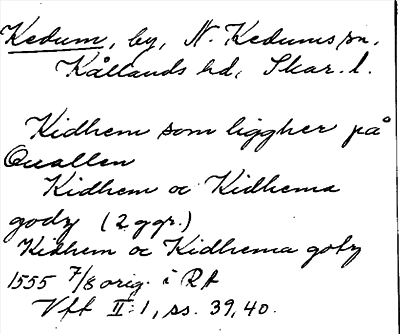 Kedum, by, N. Kedums sn.
Kållands hd, Skar. l.
Kidhem som liggher på
Quallen
Kidhem oc Kidhema
godz (2 ggr.)
Kidhem oc Kidhema gotz
1555 7/8 orig. i RA
Vft II:1, ss. 39, 40.